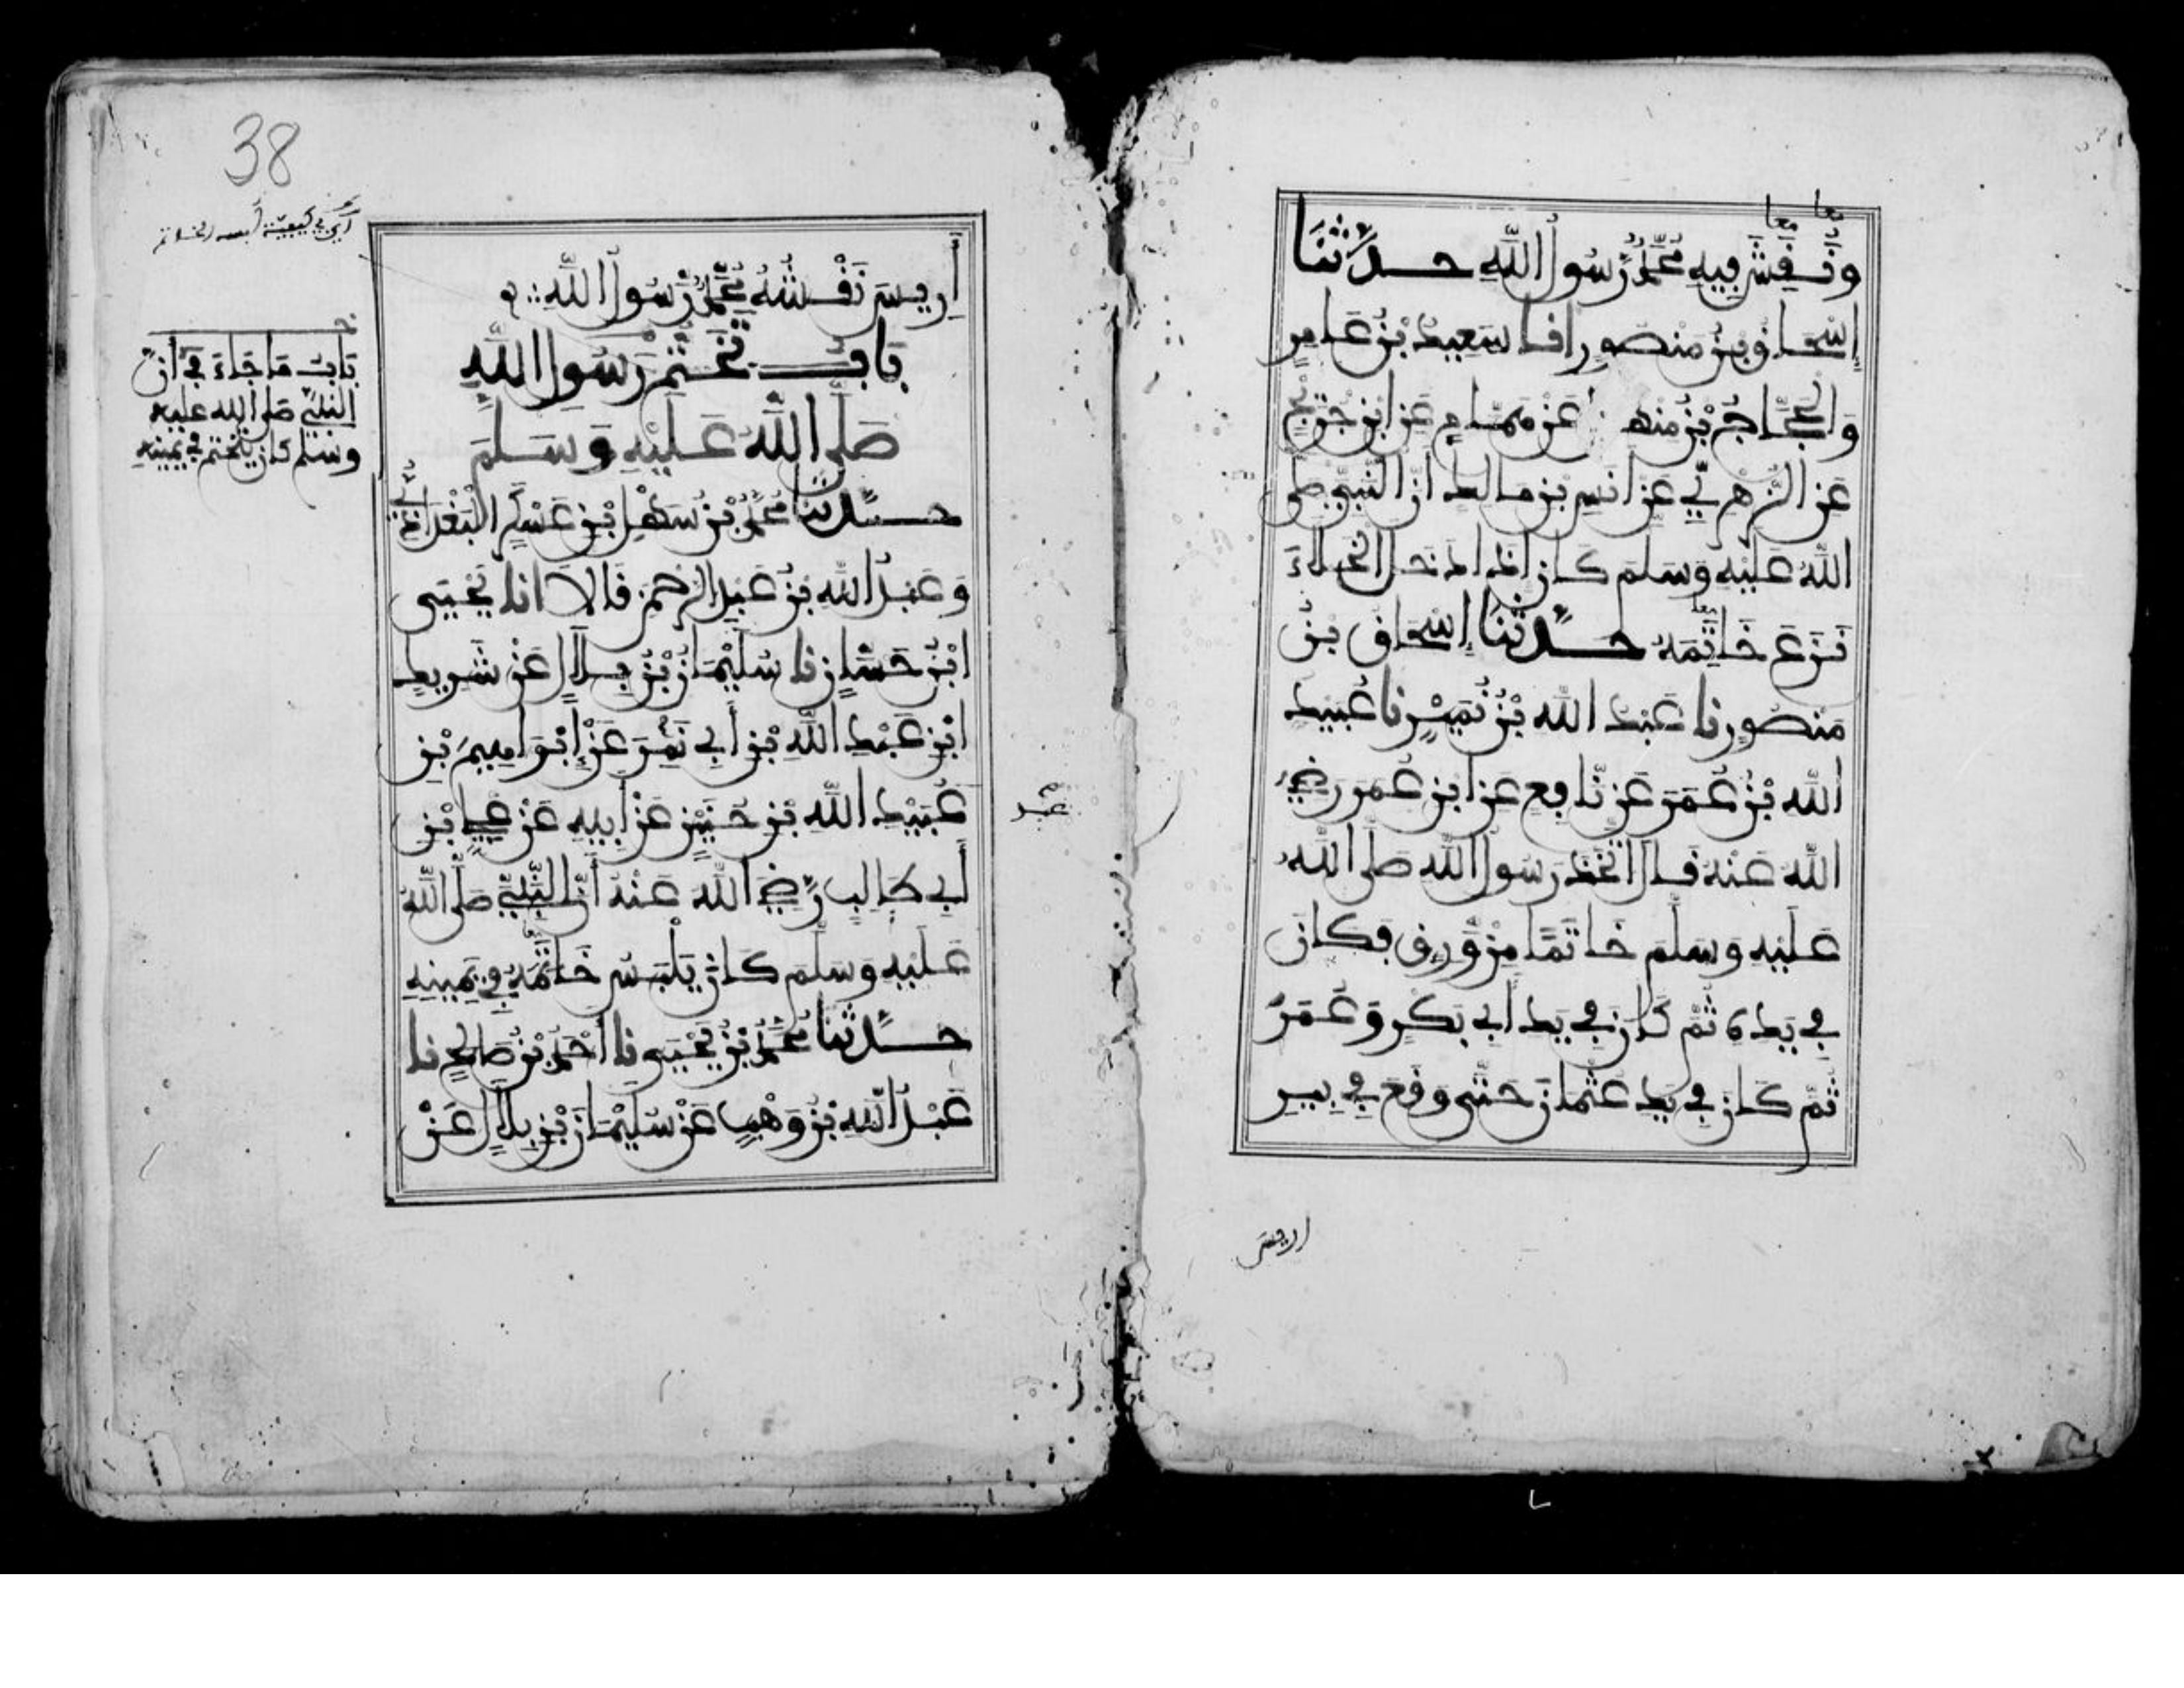 معا معا
وَنُقِشَ فِيهِ مُحَمَّدٌ رَسُولُ اللَّهِ حَدَّثَنَا
إِسْحَاقُ بْنُ مَنْصُورٍ انا سَعِيدُ بْنُ عَامِرٍ
وَالْحَجَّاجُ بْنُ مِنْهَالٍ عَنْ هَمَّامٍ عَنِ ابْنِ جُرَيْجٍ
عَنِ الزُّهْرِيِّ عَنْ أَنَسِ بْنِ مَالِكٍ أَنَّ النَّبِيَّ صَلَّى
اللَّهُ عَلَيْهِ وَسَلَّمَ كَانَ إِذَا دَخَلَ الْخَلَاءَ
نَزَعَ خَاتِمَهُ معا حَدَّثَنَا إِسْحَاقُ بْنُ
مَنْصُورٍ نا عَبْدُ اللَّهِ بْنُ نُمَيْرٍ نا عُبَيْدُ
اللَّهِ بْنُ عُمَرَ عَنْ نَافِعٍ عَنِ ابْنِ عُمَرَ رَضِيَ
اللَّهُ عَنْهُ قَالَ اتَّخَذَ رَسُولُ اللَّهِ صَلَّى اللَّهُ
عَلَيْهِ وَسَلَّمَ خَاتَمًا مِنْ وَرِقٍ فَكَانَ
فِي يَدِهِ ثُمَّ كَانَ فِي يَدِ أَبِي بَكْرٍ وَعُمَرَ
ثُمَّ كَانَ فِي يَدِ عُثْمَانَ حَتَّى وَقَعَ فِي بِيرِ
اريس
38
أي في كيفية لبس الخاتم
أَرِيسَ نَقْشُهُ مُحَمَّدٌ رَسُولُ اللَّهِ
بَابُ تَخَتُّمِ رَسُولِ اللَّهِ
صَلَّى اللَّهُ عَلَيْهِ وَسَلَّمَ
بَابُ مَا جَاءَ فِي أَنَّ
النَّبِيَّ صَلَّى اللَّهُ عَلَيْهِ
وَسَلَّمَ كَانَ يَتَخَتَّمُ فِي يَمِينِهِ
حَدَّثَنَا مُحَمَّدُ بْنُ سَهْلِ بْنِ عَسْكَرٍ الْبَغْدَادِيُّ
وَعَبْدُ اللَّهِ بْنُ عَبْدِ الرَّحْمَنِ قَالَا انا يَحْيَى
ابْنُ حَسَّانٍ نا سُلَيْمَانُ بْنُ بِلَالٍ عَنْ شَرِيكِ
ابْنِ عَبْدِ اللَّهِ بْنِ أَبِي نَمِرٍ عَنْ إِبْرَاهِيمَ بْنِ
عُبَيْدِ اللَّهِ بْنِ حُنَيْنٍ عَنْ أَبِيهِ عَنْ عَلِيِّ بْنِ
عبد
أَبِي طَالِبٍ رَضِيَ اللَّهُ عَنْهُ أَنَّ النَّبِيَّ صَلَّى اللَّهُ
عَلَيْهِ وَسَلَّمَ كَانَ يَلْبَسُ خَاتَمَهُ فِي يَمِينِهِ
حَدَّثَنَا مُحَمَّدُ بْنُ يَحْيَى نا أَحْمَدُ بْنُ صَالِحٍ نا
عَبْدُ اللَّهِ بْنُ وَهْبٍ عَنْ سُلَيْمَانَ بْنِ بِلَالٍ عَنْ